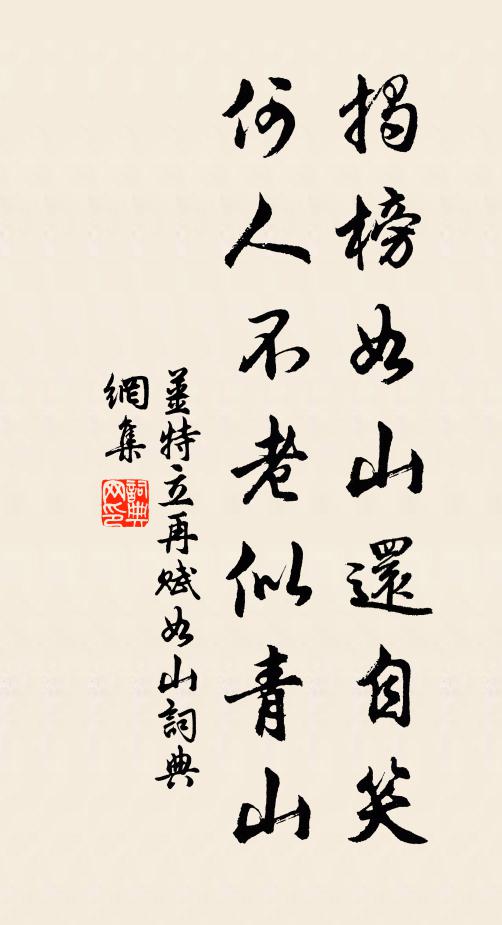 揭榜如山還自笑
何人不老似青山
姜特立再賦如山詞典
網集
詞典網印